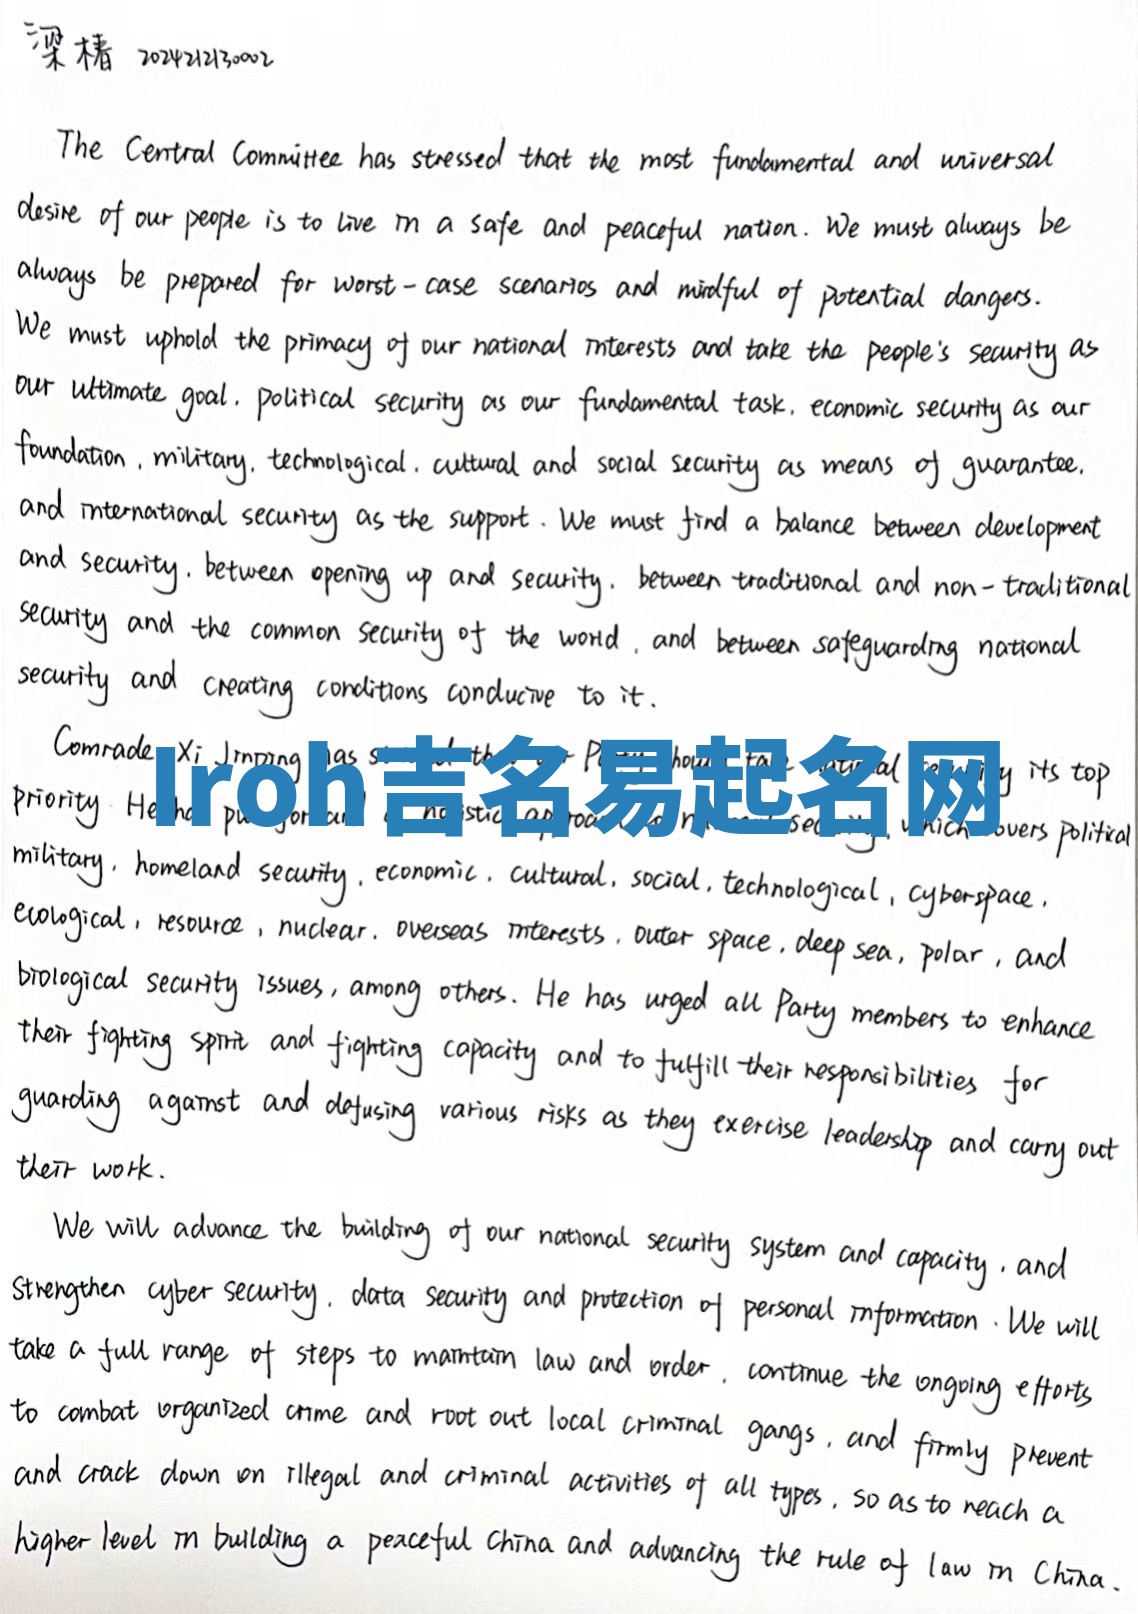 梁椿 2024212130002
The Central Committee has stressed that the most fundamental and universal
desire of our people is to live in a safe and peaceful nation. We must always be
always be prepared for worst-case scenarios and mindful of potential dangers.
We must uphold the primacy of our national interests and take the people's security as
our ultimate goal, political security as our fundamental task, economic security as our
foundation, military, technological, cultural and social security as means of guarantee,
and international security as the support. We must find a balance between development
and security, between opening up and security, between traditional and non-traditional
security and the common security of the world, and between safeguarding national
security and creating conditions conducive to it.
Comrade Xi Jinping has that Party take national its top
Iroh吉名易起名网
priority. He security, which covers political
military, homeland security, economic, cultural, social, technological, cyberspace,
ecological, resource, nuclear, overseas interests, outer space, deep sea, polar, and
biological security issues, among others. He has urged all Party members to enhance
their fighting spirit and fighting capacity and to fulfill their responsibilities for
guarding against and defusing various risks as they exercise leadership and carry out
their work.
We will advance the building of our national security system and capacity, and
strengthen cyber security, data security and protection of personal information. We will
take a full range of steps to maintain law and order, continue the ongoing efforts
to combat organized crime and root out local criminal gangs, and firmly prevent
and crack down on illegal and criminal activities of all types, so as to reach a
higher level in building a peaceful China and advancing the rule of law in China.